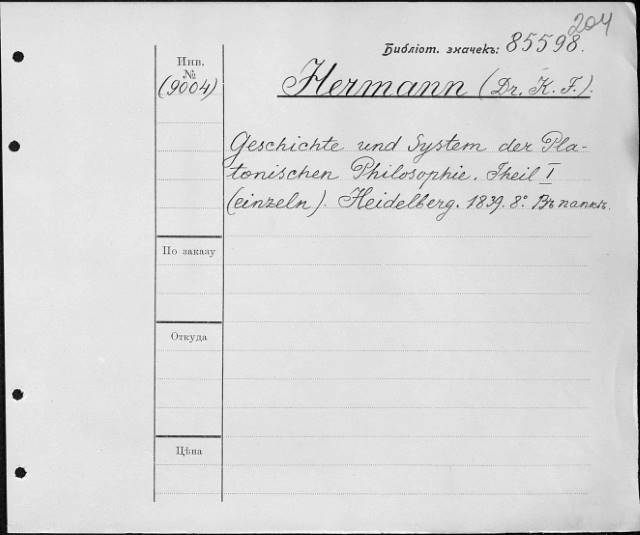 204
Библіот. значекъ: 85598.
Инв.
№
(9004)
Hermann (Dr. K. F.).
Geschichte und System der Pla-
tonischen Philosophie. Theil I
(einzeln). Heidelberg. 1839. 8° Въ папкѣ.
По заказу
Откуда
Цѣна